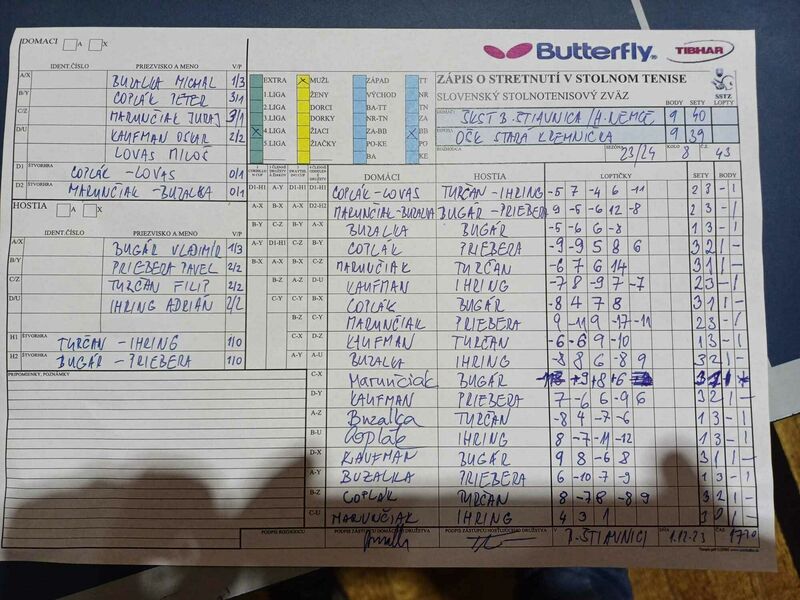 DOMÁCI A X
IDENT.ČÍSLO PRIEZVISKO A MENO V/P
A/X BUZALKA MICHAL 1/3
B/Y COPLÁK PETER 3/1
C/Z MARUNČIAK JURAJ 3/1
D/U KAUFMAN OSKAR 2/2
LOVAS MILOŠ
D1 ŠTVORHRA COPLÁK - LOVAS 0/1
D2 MARUNČIAK - BUZALKA 0/1
HOSTIA A X
IDENT.ČÍSLO PRIEZVISKO A MENO V/P
A/X BUGÁR VLADIMÍR 1/3
B/Y PRIEBERA PAVEL 2/2
C/Z TURČAN FILIP 2/2
D/U IHRING ADRIÁN 2/2
H1 ŠTVORHRA TURČAN - IHRING 1/0
H2 ŠTVORHRA BUGÁR - PRIEBERA 1/0
PRIPOMIENKY, POZNÁMKY
Butterfly TIBHAR
EXTRA MUŽI ZÁPAD TT
1.LIGA ŽENY VÝCHOD NR
2.LIGA DORCI BA-TT TN
3.LIGA DORKY NR-TN ZA
4.LIGA ŽIACI ZA-BB BB
5.LIGA ŽIAČKY PO-KE PO
BA KE
ZÁPIS O STRETNUTÍ V STOLNOM TENISE
SLOVENSKÝ STOLNOTENISOVÝ ZVÄZ SSTZ
BODY SETY LOPTY
DOMÁCI ŠKST B.ŠTIAVNICA / H.NEMCE 9 40
HOSTIA OČK STARÁ KREMNIČKA 9 39
ROZHODCA SEZÓNA 23/24 KOLO 8 Č. 43
DOMÁCI HOSTIA LOPTIČKY SETY BODY
D1-H1 COPLÁK-LOVAS TURČAN-IHRING -5 7 -4 6 -11 2 3 - 1
MARUNČIAK-BUZALKA BUGÁR-PRIEBERA 9 -5 -6 12 -8 2 3 - 1
BUZALKA BUGÁR -5 -6 6 -8 1 3 - 1
COPLÁK PRIEBERA -9 -9 5 8 6 3 2 1 -
MARUNČIAK TURČAN -6 7 6 14 3 1 1 -
KAUFMAN IHRING -7 8 -9 7 -7 2 3 - 1
COPLÁK BUGÁR -8 4 7 8 3 1 1 -
MARUNČIAK PRIEBERA 9 -11 9 -17 -11 2 3 - 1
KAUFMAN TURČAN -6 -6 9 -10 1 3 - 1
A-U BUZALKA IHRING -8 8 6 -8 9 3 2 1 -
C-X Marunčiak BUGÁR +9 +8 +6
D-Y KAUFMAN PRIEBERA 7 -6 6 -9 6 3 2 1 -
A-Z Buzalka TURČAN -8 4 -7 -6 1 3 - 1
B-U Coplák IHRING 8 -7 -11 -12 1 3 - 1
D-X KAUFMAN BUGÁR 9 8 -6 8 3 1 1 -
A-Y BUZALKA PRIEBERA 6 -10 -7 -9 1 3 - 1
B-Z COPLÁK TURČAN 8 -7 8 -8 9 3 2 1 -
C-U MARUNČIAK IHRING 4 3 1 3 0 1 -
PODPIS ROZHODCU PODPIS ZÁSTUPCU DOMÁCEHO DRUŽSTVA PODPIS ZÁSTUPCU HOSŤUJÚCEHO DRUŽSTVA V B.ŠTIAVNICI DŇA 1.12.23 ČAS 17.30